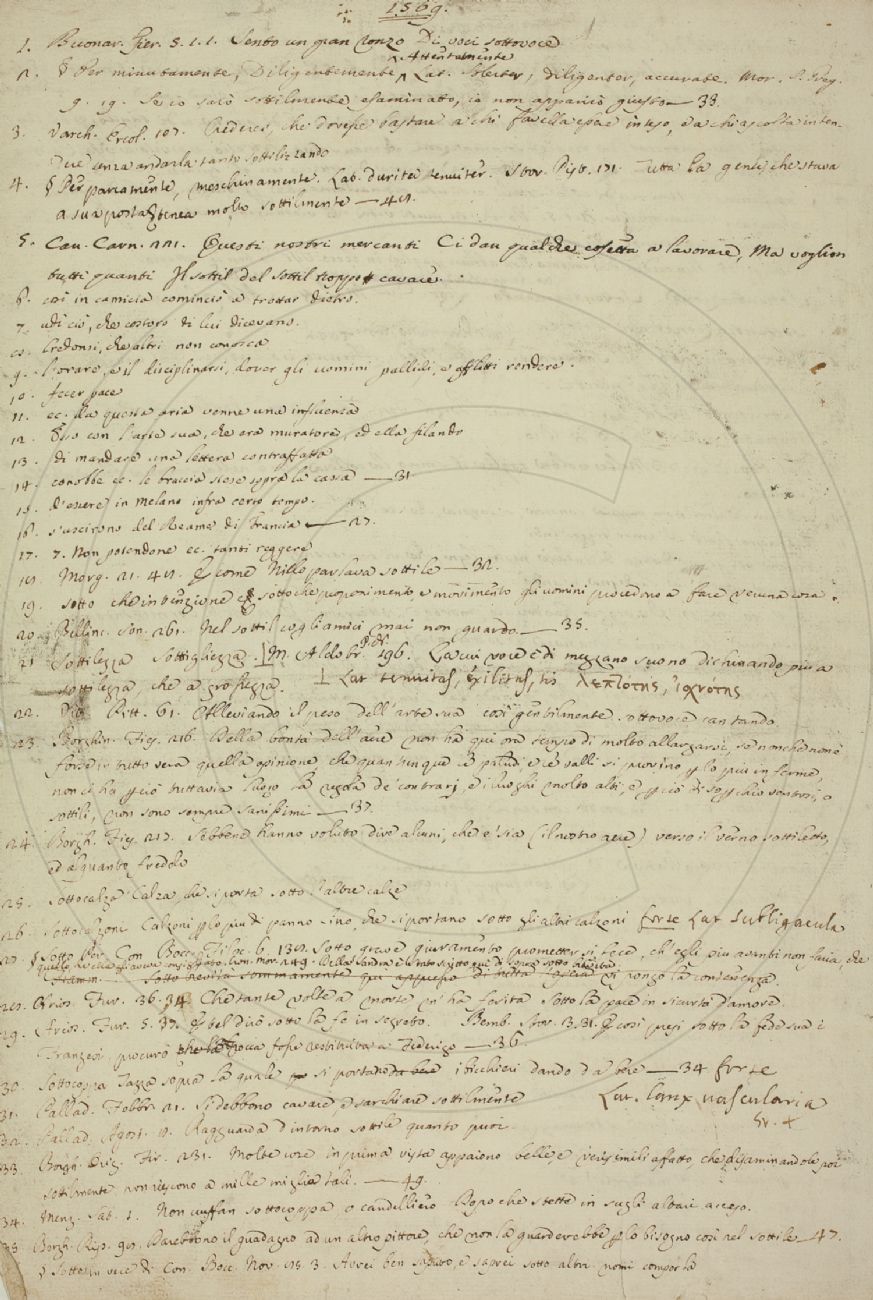 1569.
1. Buonar. Fier. 5. 1. 1. Sento un gran ronzo Di voci sottovoce
Attentamente
2. § Per minutamente, Diligentemente, Lat. solerter, diligenter, accurate. Mor. S. Greg.
9. 19. Se io sarò sottilmente esaminato, io non apparirò giusto — 33.
3. Varch. Ercol. 107. Credersi, che dovesse bastare a chi favella esser inteso, e a chi ascolta inten-
dere senza andarla tanto sottilizzando
4. § Per parcamente, meschinamente. Lat. duriter tenuiter. Stor. Pist. 171. Tutta la gente, che stava
a sua posta, tenea molto sottilmente — 45.
5. Can. Carn. 221. Questi nostri mercanti Ci dan qualche cosetta a lavorare, Ma voglion
tutti quanti Il sottil del sottil troppo cavare.
6. così in camicia cominciò a trottar dietro.
7. udì ciò, che costoro di lui dicevano.
8. Credonsi, che altri non conosca
9. l'orare, e il disciplinarsi, dover gli uomini pallidi, e afflitti rendere.
10. fecer pace
11. ec. da questa aria venne una influenza
12. Esso con l'arte sua, che era muratore, ed ella filando
13. di mandare una lettera contraffatta
14. conobbe ec. le braccia stese sopra la cassa — 31.
15. d'essere in Melano infra certo tempo.
16. s'uscirono del Reame di Francia — 27.
17. 7. Non potendone ec. tanti reggere
18. Morg. 21. 48. E come Nillo parlava sottile — 32.
19. sotto che intenzione e sotto che proponimento, e movimento gli uomini procedono a fare veruna cosa.
20. Bellinc. son. 261. Nel sottil cogli amici mai non guardo — 35.
21. Sottilezza Sottigliezza. M. Aldobr. P. N. 196. La cui voce è di mezzano suono dichinando più a
sottilezza, che a grossezza. Lat. tenuitas, exilitas, tis λεπτότης, ἰσχνότης
22. Ritt. 61. Alleviando il peso dell'arte sua così gentilmente sottovoce cantando.
23. Borghin. Fies. 216. Della bontà dell'aere non ha qui ora tempo di molto allargarsi, se non che non è
forse in tutto vera quella opinione, che quantunque le paludi, e le valli si provino p lo più inferme,
non ci ha p ciò tuttavia luogo la regola de' contrarj, e i luoghi molto alti, e p ciò di soperchio ventosi, o
sottili, non sono sempre sanissimi — 37.
24. Borgh. Fies. 217. Sebbene hanno voluto dire alcuni, che e' sia (il nostro aere) verso il verno sottiletto,
ed alquanto freddo
25. Sottocalza Calza, che si porta sotto l'altre calze
26. Sottocalzoni Calzoni p lo più di panno lino, che si portano sotto gli altri calzoni forse Lat subligacula
27. § Sotto Per Con Bocc. Filoc. 6. 138. Sotto grave giuramento prometter si fece, ch'egli più avanti non faria, che
28. Arios. Fur. 36. 34. Che tante volte a morte m'ha ferita Sotto la pace in sicurtà d'amore
29. Arios. Fur. 5. 37. E bel diro sotto la fe in segreto. Bemb. Stor. 3. 31. E così presi sotto la fede sua i
Franzesi procurò che la rocca fosse restituita a Federigo — 36.
30. Sottocoppa Tazza sopra la quale si portano i bicchieri dando da bere — 34 forse
Lat. lanx vascularia
31. Pallad. Febbr. 21. Si debbono cavare e sarchiare sottilmente
32. Pallad. Agost. 9. Ragguarda d'intorno sottile quanto puoi.
33. Borgh. Orig. Fir. 231. Molte cose in prima vista appaiono belle e verisimili affatto, che disaminandole poi
sottilmente non riescono a mille miglia tali. — 49.
34. Menz. Sat. 1. Non cuffian sottocoppa, o candelliero Dopo che stette in sugli altari acceso.
35. Borgh. Rip. 90. Darebbono il guadagno ad un altro pittore, che non la guarderebbe p lo bisogno così nel sottile — 47.
§ Sotto in vece di Con. Bocc. Nov. 15. 3. Avrei ben saputo, e saprei sotto altri nomi comporla